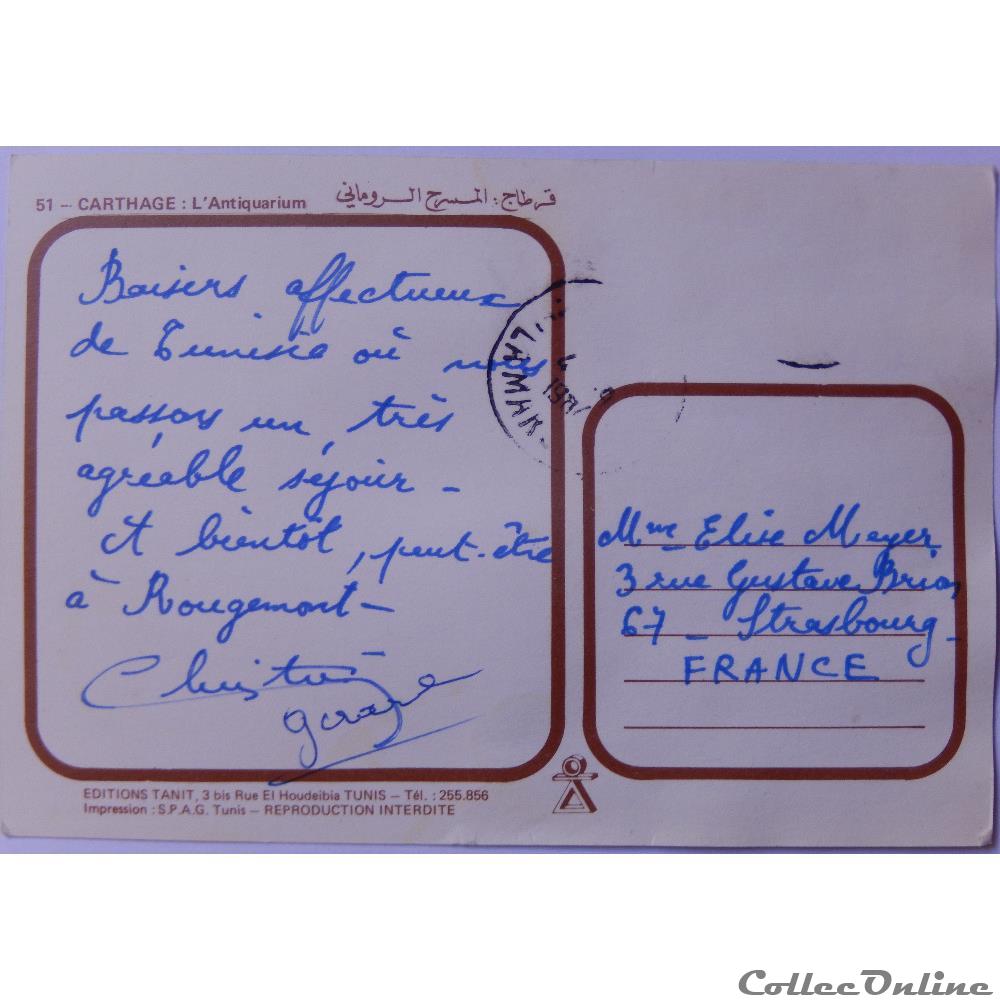 51 – CARTHAGE : L'Antiquarium قرطاج : المسرح الروماني
Baisers affectueux
de Tunisie où nous
passons un très
agréable séjour –
A bientôt, peut-être
à Rougemont –
HAMMA
Mme Elise Meyer
3 rue Gustave Brion
67 – Strasbourg –
FRANCE
EDITIONS TANIT, 3 bis Rue El Houdeibia TUNIS – Tél. : 255.856
Impression : S.P.A.G. Tunis – REPRODUCTION INTERDITE
CollecOnline